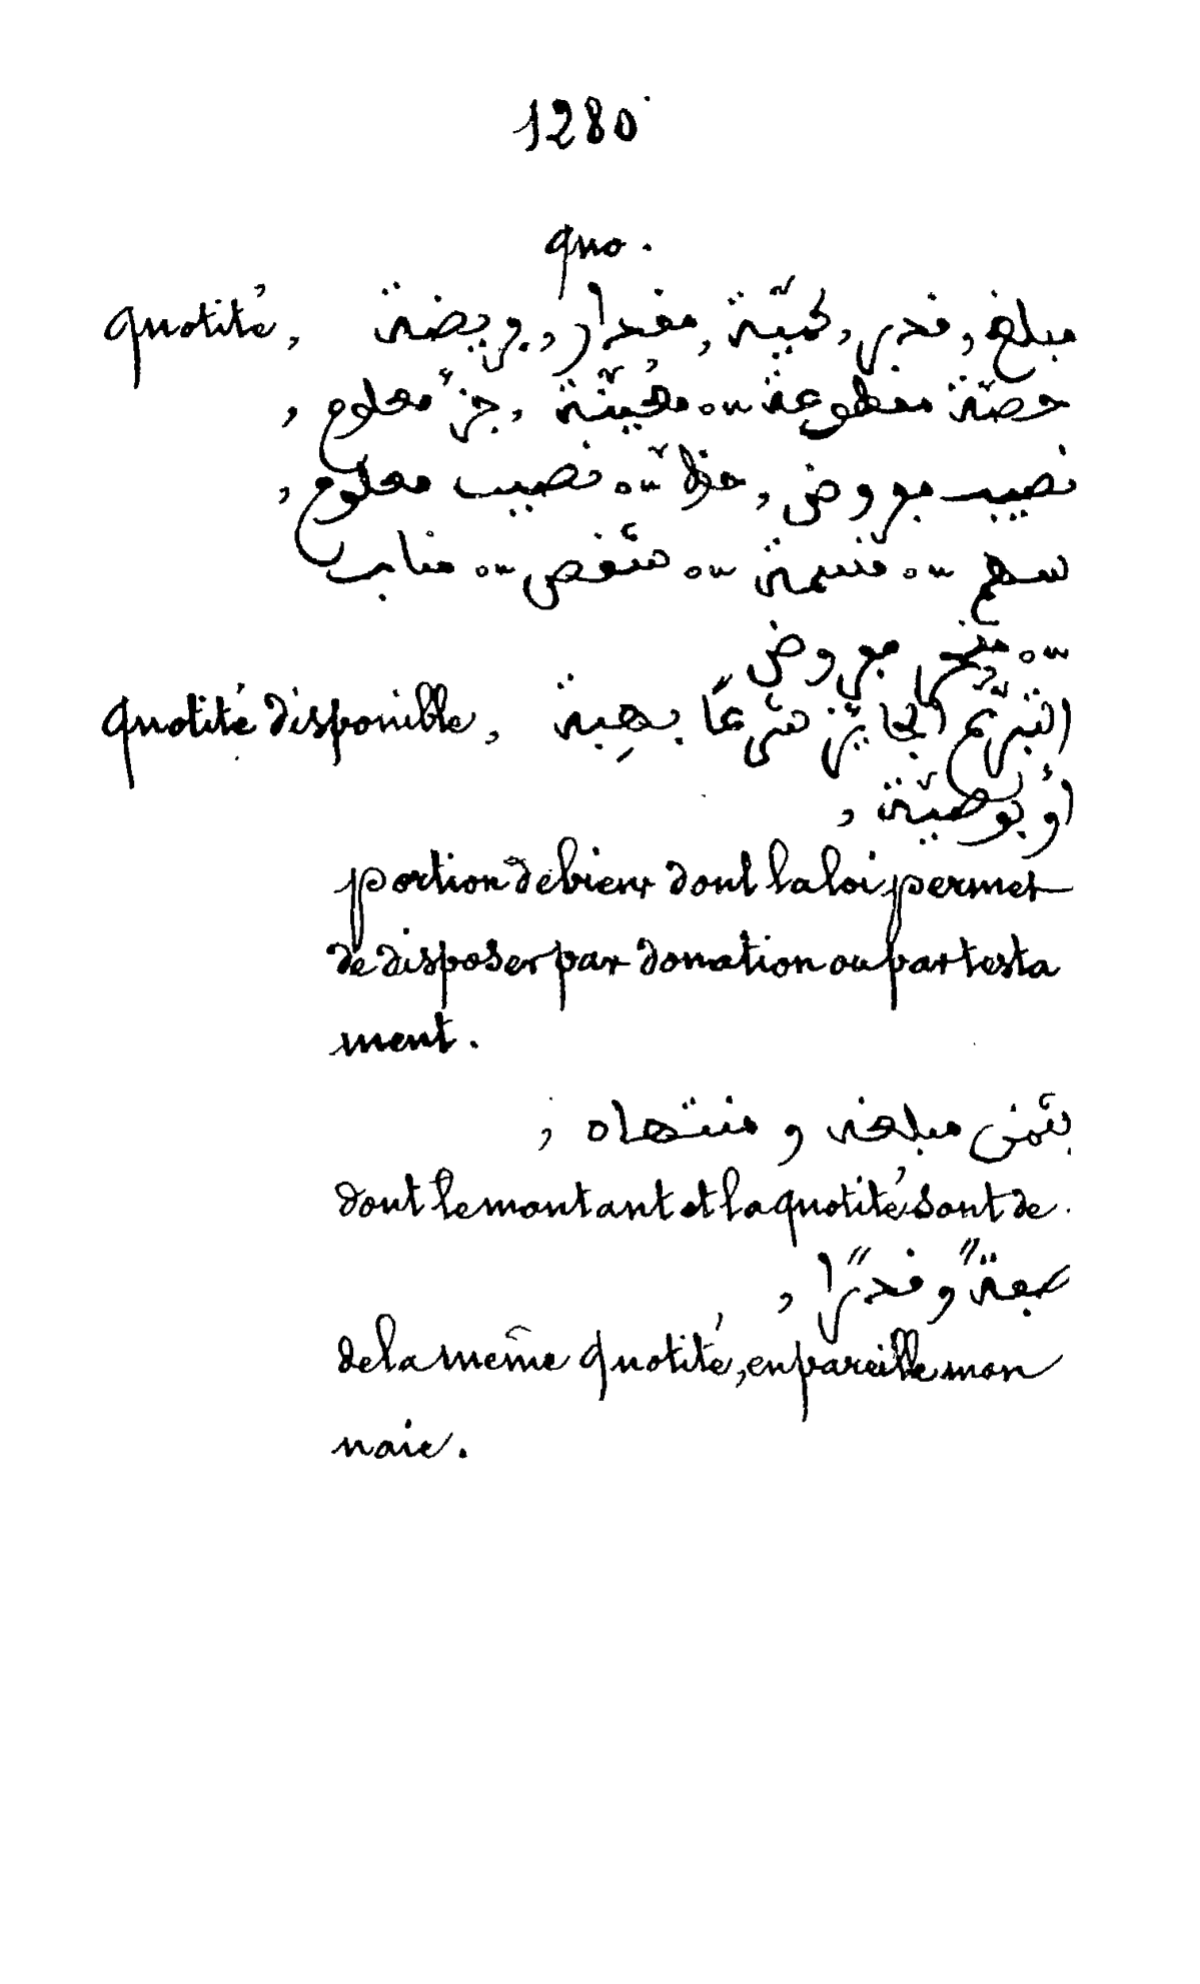 1280
quo.
quotité, مبلغ, قدر, كميّة, مقدار, فريضة
حصّة مقطوعة ~o معُيّنة, جزءٌ معلوم,
نصيب مفروض, حظّ ~o نصيب معلوم,
سهم ~o قسمة ~o شقص ~o مناب
~o مفروض
quotité disponible, التبرّع الجايز شرعًا بهِبة
أو بوصيّة,
portion de biens dont la loi permet
de disposer par donation ou par testa
ment.
بثمن مبلغه و منتهاه,
dont le montant et la quotité sont de.
صفةً و قدرًا,
de la même quotité, en pareille mon
naie.